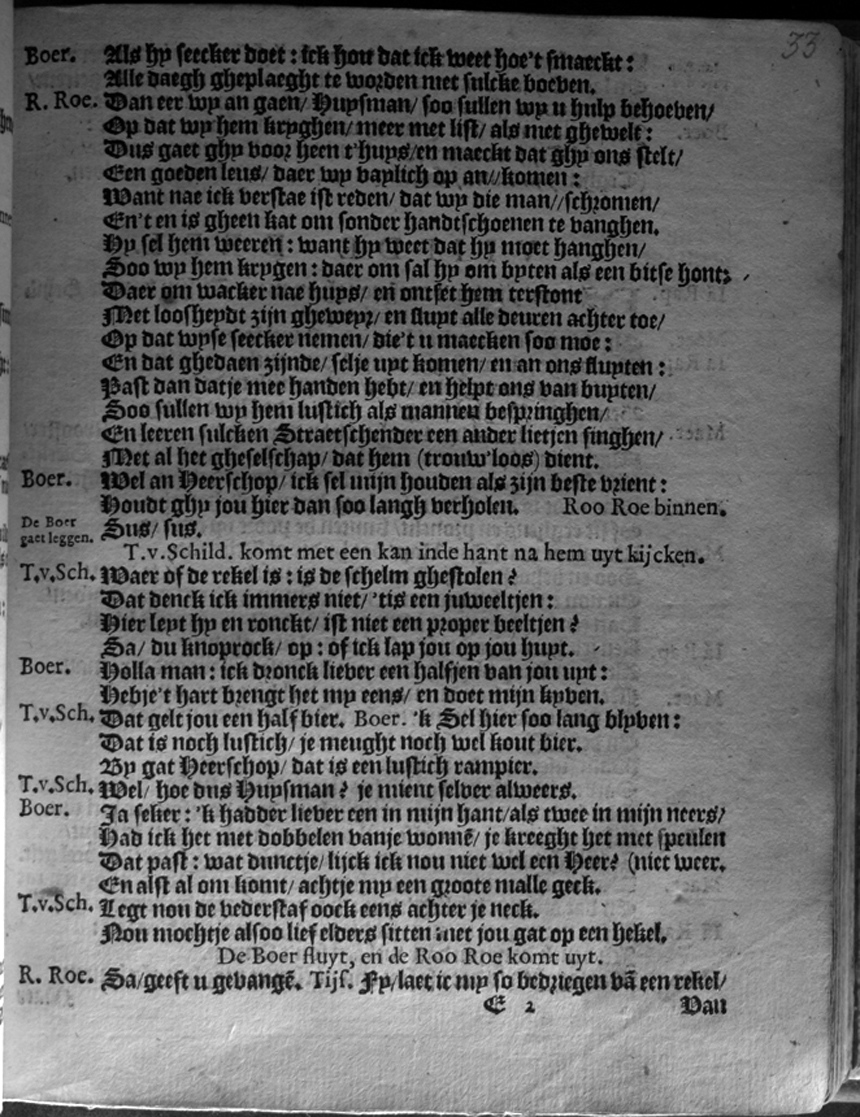 33
Boer. Als hy seecker doet : ick hou dat ick weet hoe't smaeckt :
Alle daegh gheplaeght te worden met sulcke boeven.
R. Roe. Dan eer wy an gaen/ Huysman/ soo sullen wy u hulp behoeven/
Op dat wy hem kryghen/ meer met list/ als met ghewelt :
Dus gaet ghy voor heen t'huys/ en maeckt dat ghy ons stelt/
Een goeden leus/ daer wy vaylich op an//komen :
Want nae ick verstae ist reden/ dat wy die man//schromen/
En't en is gheen kat om sonder handtschoenen te vanghen.
Hy sel hem weeren : want hy weet dat hy moet hanghen/
Soo wy hem krygen : daer om sal hy om byten als een bitse hont;
Daer om wacker nae huys/ en ontset hem terstont
Met loosheydt zijn gheweyr/ en sluyt alle deuren achter toe/
Op dat wyse seecker nemen/ die't u maecken soo moe :
En dat ghedaen zijnde/ selje uyt komen/ en an ons fluyten :
Past dan datje mee handen hebt/ en helpt ons van buyten/
Soo sullen wy hem lustich als mannen bespringhen/
En leeren sulcken Straetschender een ander lietjen singhen/
Met al het gheselschap/ dat hem (trouw'loos) dient.
Boer. Wel an Heerschop/ ick sel mijn houden als zijn beste vrient :
Houdt ghy jou hier dan soo langh verholen. Roo Roe binnen.
De Boer gaet leggen. Sus/ sus.
T.v.Schild. komt met een kan inde hant na hem uyt kijcken.
T.v.Sch. Waer of de rekel is : is de schelm ghestolen ?
Dat denck ick immers niet/ 'tis een juweeltjen :
Hier leyt hy en ronckt/ ist niet een proper beeltjen ?
Sa/ du knoprock/ op : of ick lap jou op jou huyt.
Boer. Holla man : ick dronck liever een halfjen van jou uyt :
Hebje't hart brengt het my eens/ en doet mijn kyven.
T.v.Sch. Dat gelt jou een half bier. Boer. 'k Sel hier soo lang blyven :
Dat is noch lustich/ je meught noch wel kout bier.
By gat Heerschop/ dat is een lustich rampier.
T.v.Sch. Wel/ hoe dus Huysman ? je mient selver alweers.
Boer. Ja seker : 'k hadder liever een in mijn hant/als twee in mijn neers/
Had ick het met dobbelen vanje wonnē/ je kreeght het met speulen
Dat past : wat dunctje/ lijck ick nou niet wel een Heer? (niet weer.
En alst al om komt/ achtje my een groote malle geck.
T.v.Sch. Legt nou de vederstaf oock eens achter je neck.
Nou mochtje alsoo lief elders sitten met jou gat op een hekel.
De Boer fluyt, en de Roo Roe komt uyt.
R. Roe. Sa/geeft u gevangē. Tijs. Fy/laet ic my so bedriegen vā een rekel/
E 2 Van